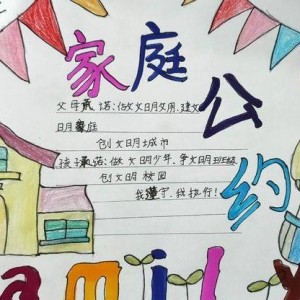 家庭公约
父母承诺:做文明父母,建文
明家庭
创文明城市
孩子承诺:做文明少年,争文明班级
创文明校园
我遵守,我执行!
amily